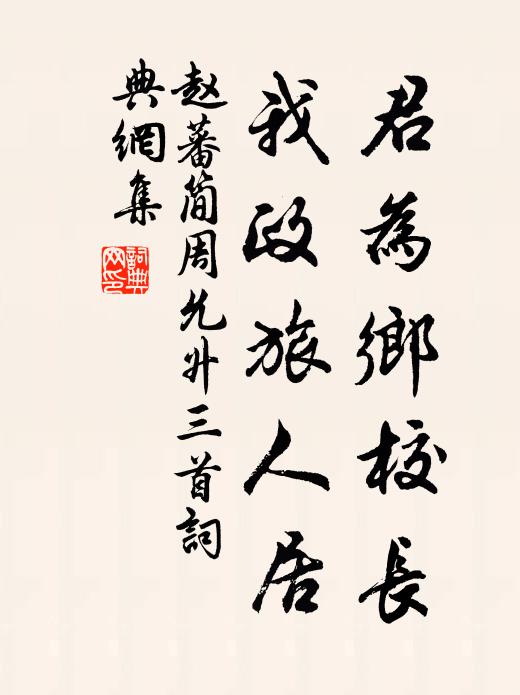 君為鄉校長
我政旅人居
赵蕃简周允升三首詞
典網集
詞典
网印